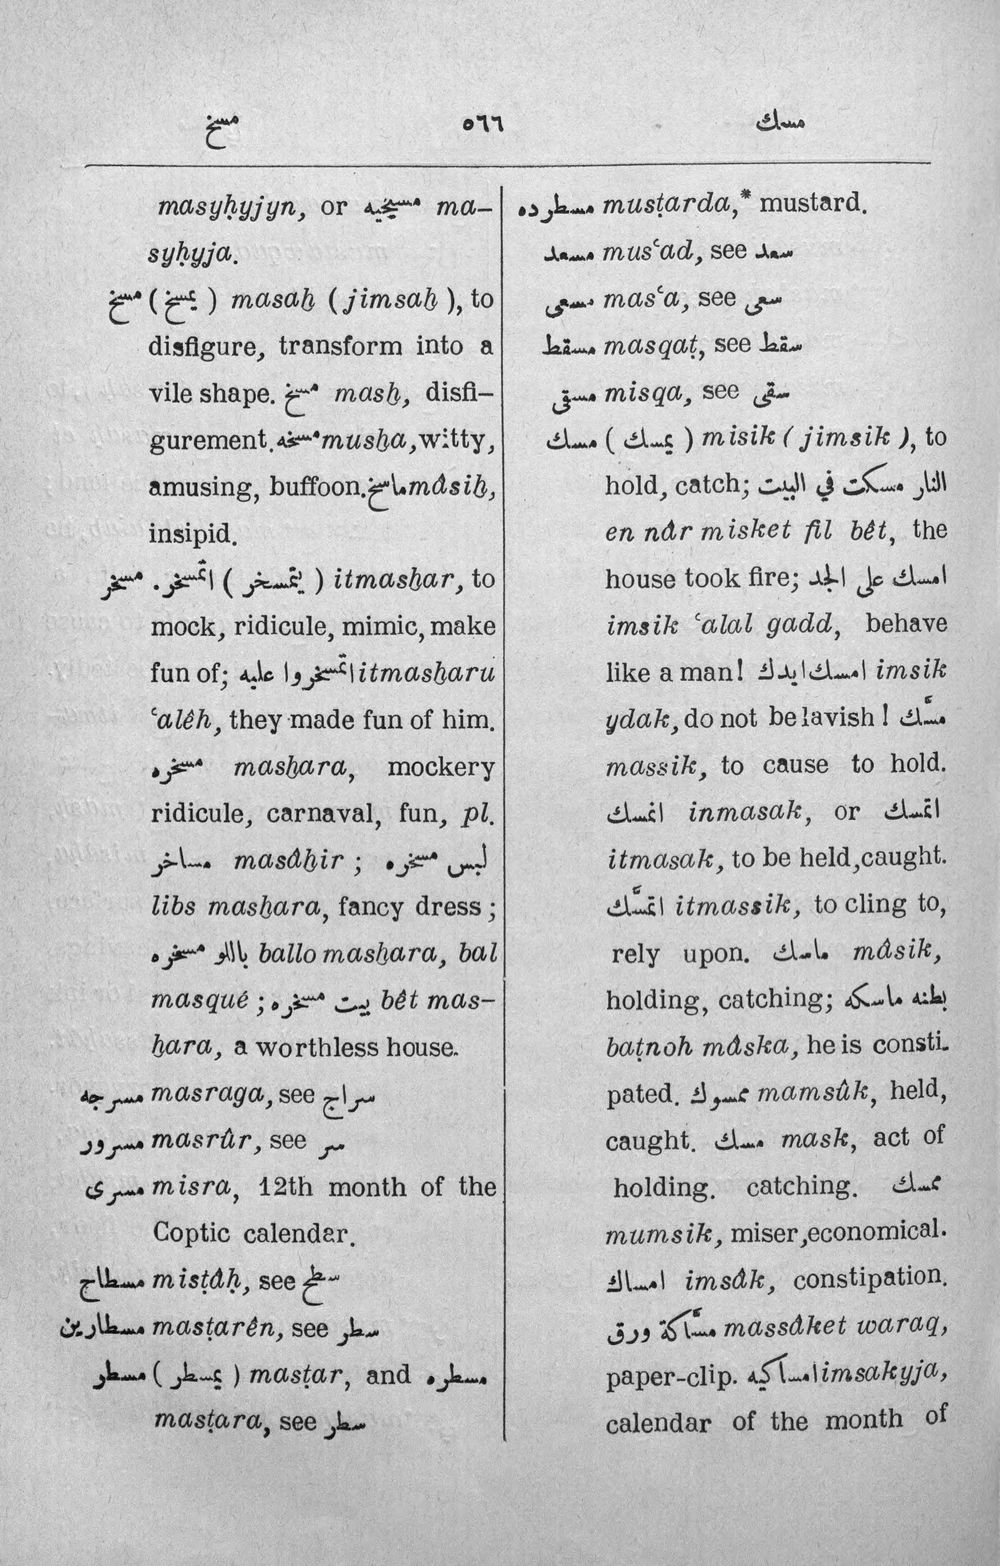 مسخ ٥٦٦ مسك
masyḥyjyn, or مسيحيه ma-
syḥyja.
مسخ (يمسخ) masaẖ (jimsaẖ), to
disfigure, transform into a
vile shape. مسخ masẖ, disfi-
gurement. مسخه musẖa, witty,
amusing, buffoon. ماسخ mâsiẖ,
insipid.
مسخر . اتمسخر (يتمسخر) itmasẖar, to
mock, ridicule, mimic, make
fun of; اتمسخروا عليه itmasẖaru
ʿalêh, they made fun of him.
مسخره masẖara, mockery
ridicule, carnaval, fun, pl.
مساخر masâẖir ; لبس مسخره
libs masẖara, fancy dress ;
باللو مسخره ballo masẖara, bal
masqué ; بيت مسخره bêt mas-
ẖara, a worthless house.
مسرجه masraga, see سراج
مسرور masrûr, see سر
مسرى misra, 12th month of the
Coptic calendar.
مسطاح misṭâḥ, see سطح
مسطارين masṭarên, see سطر
مسطر (يمسطر) masṭar, and مسطره
masṭara, see سطر
مسطرده musṭarda,* mustard.
مسعد musʿad, see سعد
مسعى masʿa, see سعى
مسقط masqaṭ, see سقط
مسقى misqa, see سقى
مسك (يمسك) misik (jimsik), to
hold, catch; النار مسكت في البيت
en nâr misket fil bêt, the
house took fire; امسك على الجد
imsik ʿalal gadd, behave
like a man! امسك ايدك imsik
ydak, do not be lavish! مسّك
massik, to cause to hold.
انمسك inmasak, or اتمسك
itmasak, to be held, caught.
اتمسّك itmassik, to cling to,
rely upon. ماسك mâsik,
holding, catching; بطنه ماسكه
baṭnoh mâska, he is consti-
pated. ممسوك mamsûk, held,
caught. مسك mask, act of
holding. catching. ممسك
mumsik, miser, economical.
امساك imsâk, constipation.
مسّاكة ورق massâket waraq,
paper-clip. امساكيه imsakyja,
calendar of the month of